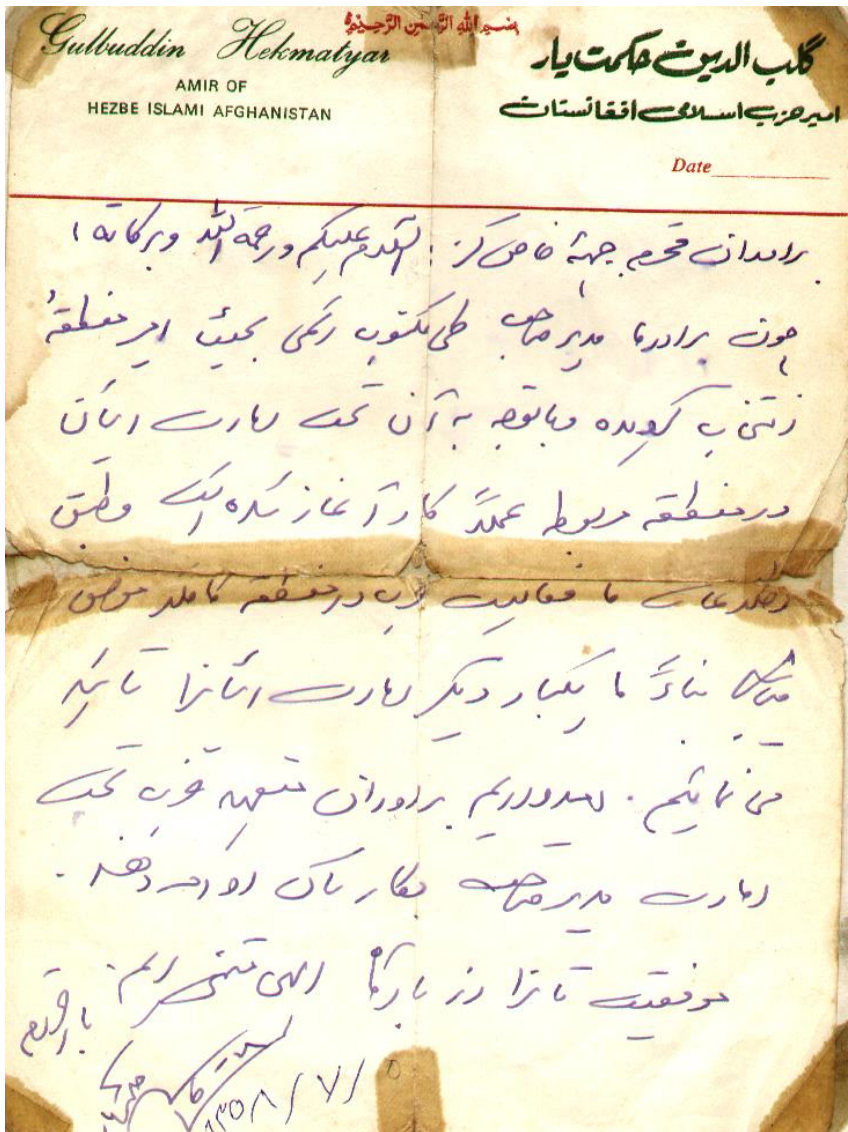 بسم الله الرحمن الرحيم
Gulbuddin Hekmatyar
AMIR OF
HEZBE ISLAMI AFGHANISTAN
گلب الدین حکمت یار
امیر حزب اسلامی افغانستان
Date
برادران محترم جبههٔ خاص کز: السلام علیکم ورحمة الله وبرکاته،
چون برادر ما مدیر صاحب طی مکتوب رسمی بحیث امیر منطقهٔ
انتخاب گردیده و با توجه به آن تحت امارت ایشان
در منطقه مربوط عملاً کار آغاز شده است و طبق
اطلاعات ما فعالیت حزب در منطقه کاملاً موفق
میباشد بناءً ما یکبار دیگر امارت ایشانرا تائید
می نمائیم. امیدواریم برادران متعهد حزب تحت
امارت مدیر صاحب بکار شان ادامه دهند.
موفقیت تانرا از بارگاه الهی متمنی ایم.
با احترام
۱۳۵۸/۷/۵